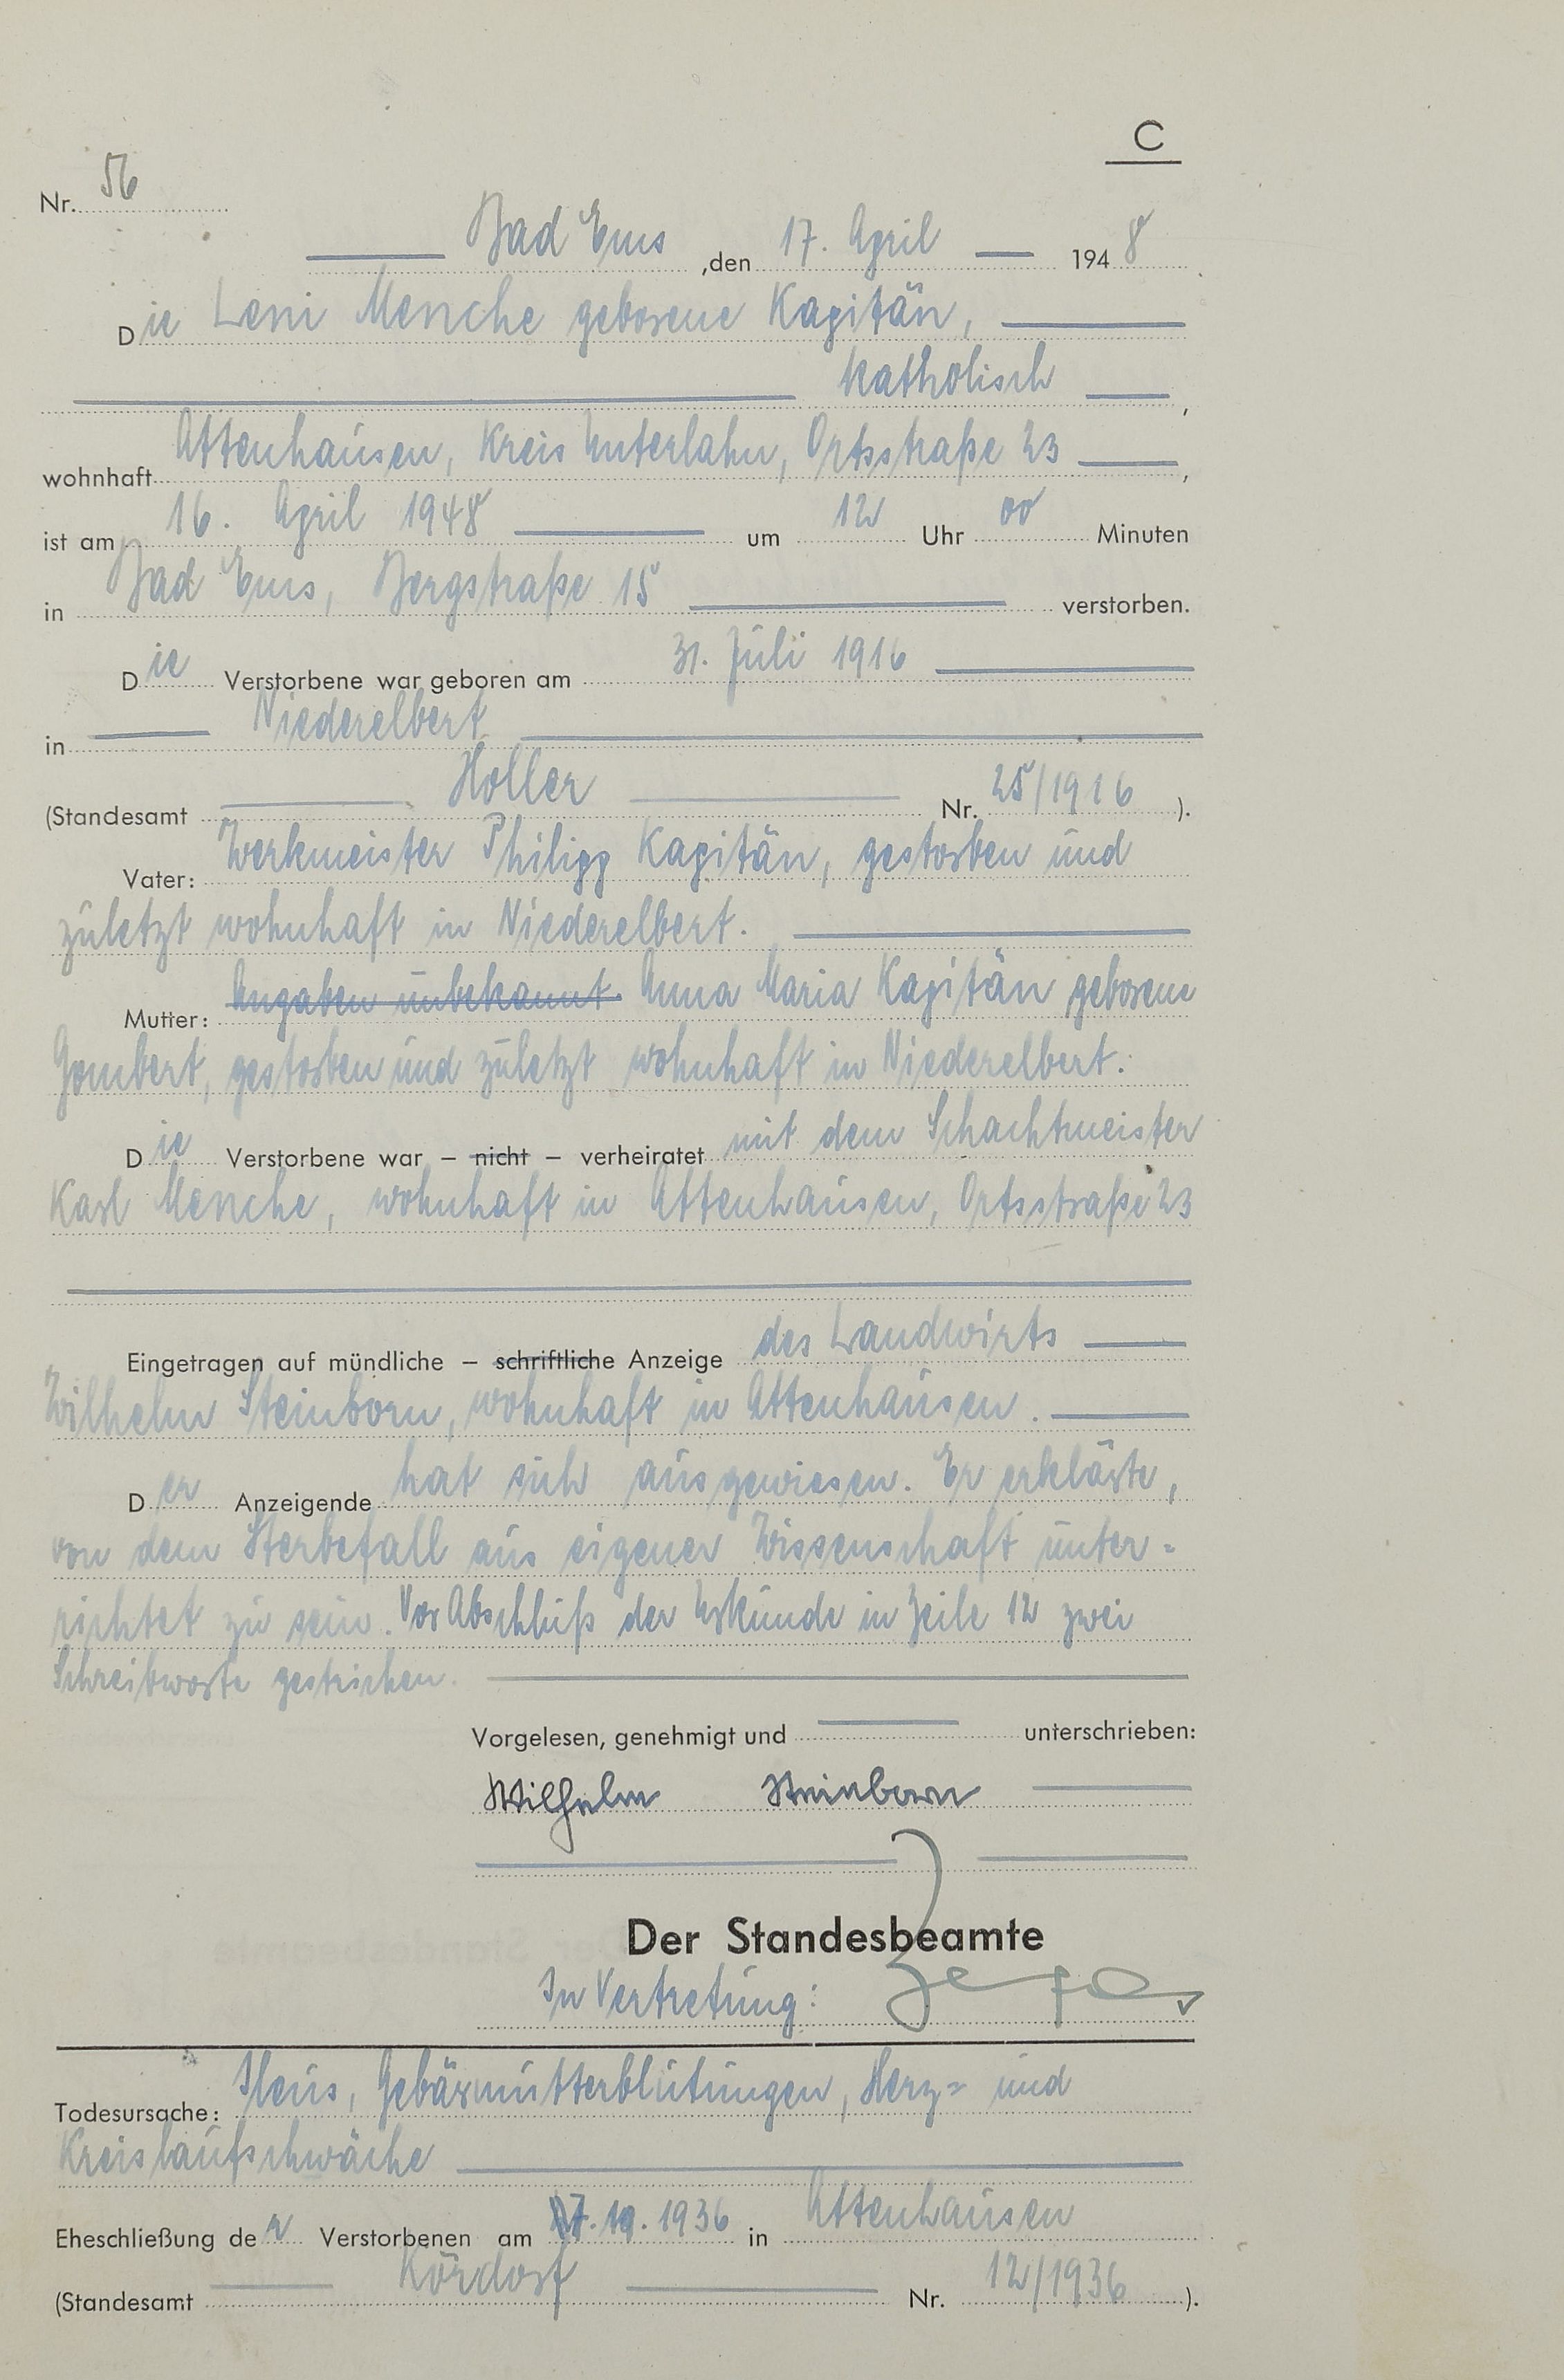 C
Nr. 56
Bad Ems, den 17. April 1948
Die Leni Menche geborene Kapitän,
katholisch,
wohnhaft Attenhausen, Kreis Unterlahn, Ortsstraße 23,
ist am 16. April 1948 um 12 Uhr 00 Minuten
in Bad Ems, Bergstraße 15 verstorben.
Die Verstorbene war geboren am 31. Juli 1916
in Niederelbert
(Standesamt Holler Nr. 25/1916).
Vater: Werkmeister Philipp Kapitän, gestorben und
zuletzt wohnhaft in Niederelbert.
Mutter: Angaben unbekannt. Anna Maria Kapitän geborene
Gombert, gestorben und zuletzt wohnhaft in Niederelbert.
Die Verstorbene war – nicht – verheiratet mit dem Schachtmeister
Karl Menche, wohnhaft in Attenhausen, Ortsstraße 23
Eingetragen auf mündliche – schriftliche Anzeige des Landwirts
Wilhelm Steinborn, wohnhaft in Attenhausen.
Der Anzeigende hat sich ausgewiesen. Er erklärte,
von dem Sterbefall aus eigener Wissenschaft unter-
richtet zu sein. Vor Abschluß der Urkunde in Zeile 12 zwei
Schreibworte gestrichen.
Vorgelesen, genehmigt und unterschrieben:
Wilhelm Steinborn
Der Standesbeamte
In Vertretung:
Todesursache: Ileus, Gebärmutterblutungen, Herz- und
Kreislaufschwäche
Eheschließung der Verstorbenen am 1936 in Attenhausen
(Standesamt Kördorf Nr. 12/1936).